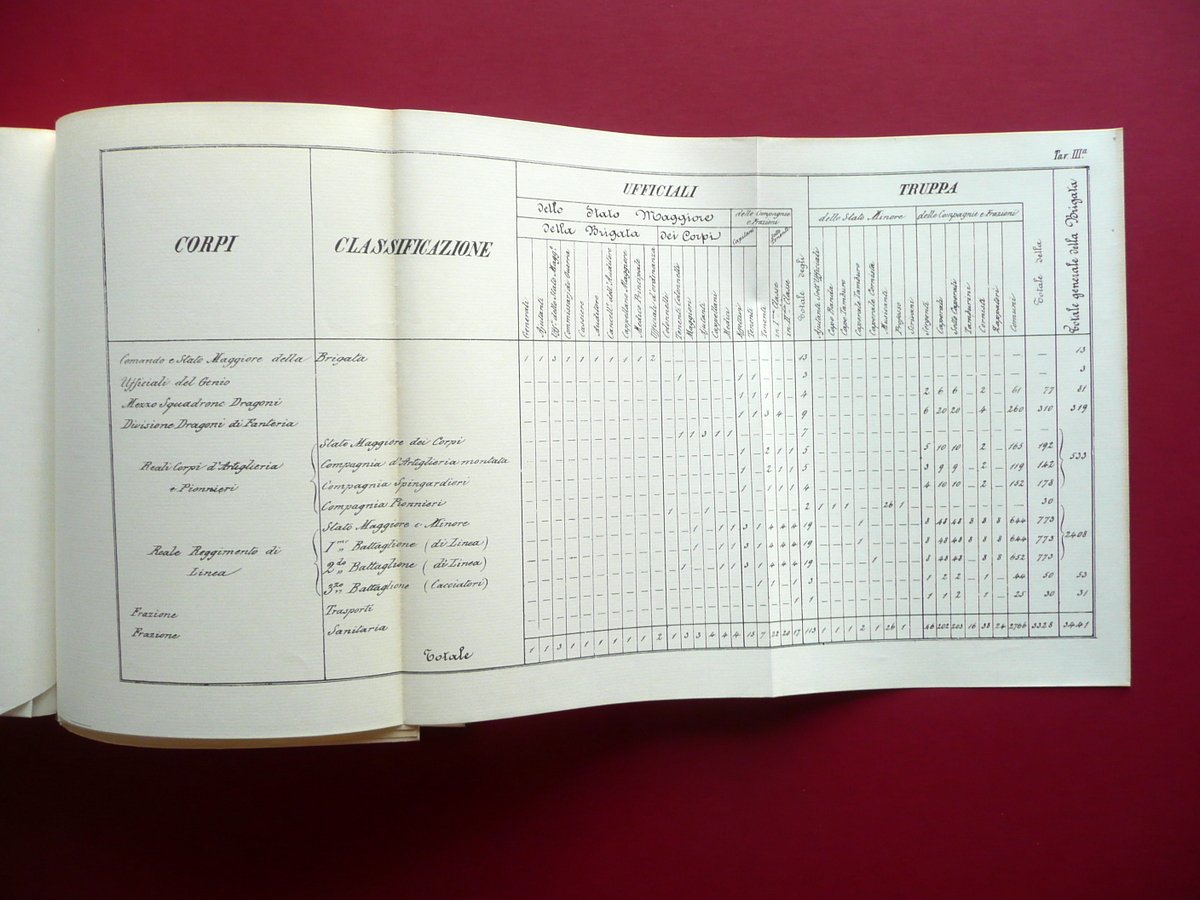 Tav. IIIª
CORPI
CLASSIFICAZIONE
UFFICIALI
TRUPPA
dello Stato Maggiore
delle Compagnie e Frazioni
della Brigata
dei Corpi
dello Stato Minore
delle Compagnie e Frazioni
Capitani
Generali
Ajutanti
Uff.i dello Stato Magg.e
Commissarj di Guerra
Cassiere
Auditore
Cancell.e dell'Auditore
Cappellano Maggiore
Medico Principale
Ufficiali d'ordinanza
Colonnelli
Tenenti Colonnelli
Maggiori
Ajutanti
Cappellani
Medici
Effettivi
Tenenti
Tenenti
in Iª Classe
in IIª Classe
Totale degli
Ajutanti Sott'Ufficiali
Capo Banda
Capo Tamburo
Caporale Tamburo
Caporale Cornetta
Musicanti
Profosso
Scrivani
Sergenti
Caporali
Sotto Caporali
Tamburini
Cornetti
Zappatori
Comuni
Totale della
Totale generale della Brigata
Comando e Stato Maggiore della Brigata 1 1 3 1 1 1 1 1 1 2 13 — 13
Ufficiali del Genio 1 1 1 3 — 3
Mezzo Squadrone Dragoni 1 1 1 1 4 2 6 6 — 2 — 61 77 81
Divisione Dragoni di Fanteria 1 1 3 4 — 9 6 20 20 — 4 — 260 310 319
Reali Corpi d'Artiglieria
e Pionnieri
Stato Maggiore dei Corpi 1 1 3 1 1 7
Compagnia d'Artiglieria montata 1 — 2 1 1 5 5 10 10 — 2 — 165 192
Compagnia Spingardieri 1 — 2 1 1 5 3 9 9 — 2 — 119 142
Compagnia Pionnieri 1 — 1 1 1 4 4 10 10 — 2 — 152 178
533
Reale Reggimento di
Linea
Stato Maggiore e Minore 1 1 2 1 1 1 26 1 30
1mo Battaglione (di Linea) 1 — 1 1 3 1 4 4 4 19 1 8 48 48 8 8 8 644 773
2do Battaglione (di Linea) 1 — 1 1 3 1 4 4 4 19 1 8 48 48 8 8 8 644 773
3zo Battaglione (Cacciatori) 1 1 1 3 1 4 4 4 19 1 8 48 48 — 8 8 652 773
2408
Frazione Trasporti 1 1 — 1 3 1 2 2 — 1 — 44 50 53
Frazione Sanitaria 1 1 1 1 2 — 1 — 25 30 31
Totale 1 1 3 1 1 1 1 1 1 2 1 3 3 4 4 4 13 7 22 20 17 113 1 1 1 2 1 26 1 46 202 203 16 38 24 2766 3328 3441